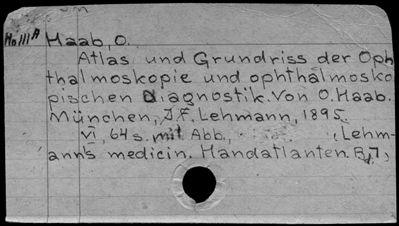 Ho III A
Haab, O.
Atlas und Grundriss der Oph
thalmoskopie und ophthalmosko
pischen Diagnostik. Von O. Haab.
München, J.F. Lehmann, 1895.
VI, 64 s. mit Abb., (Lehm-
ann's medicin. Handatlanten. B. 7)